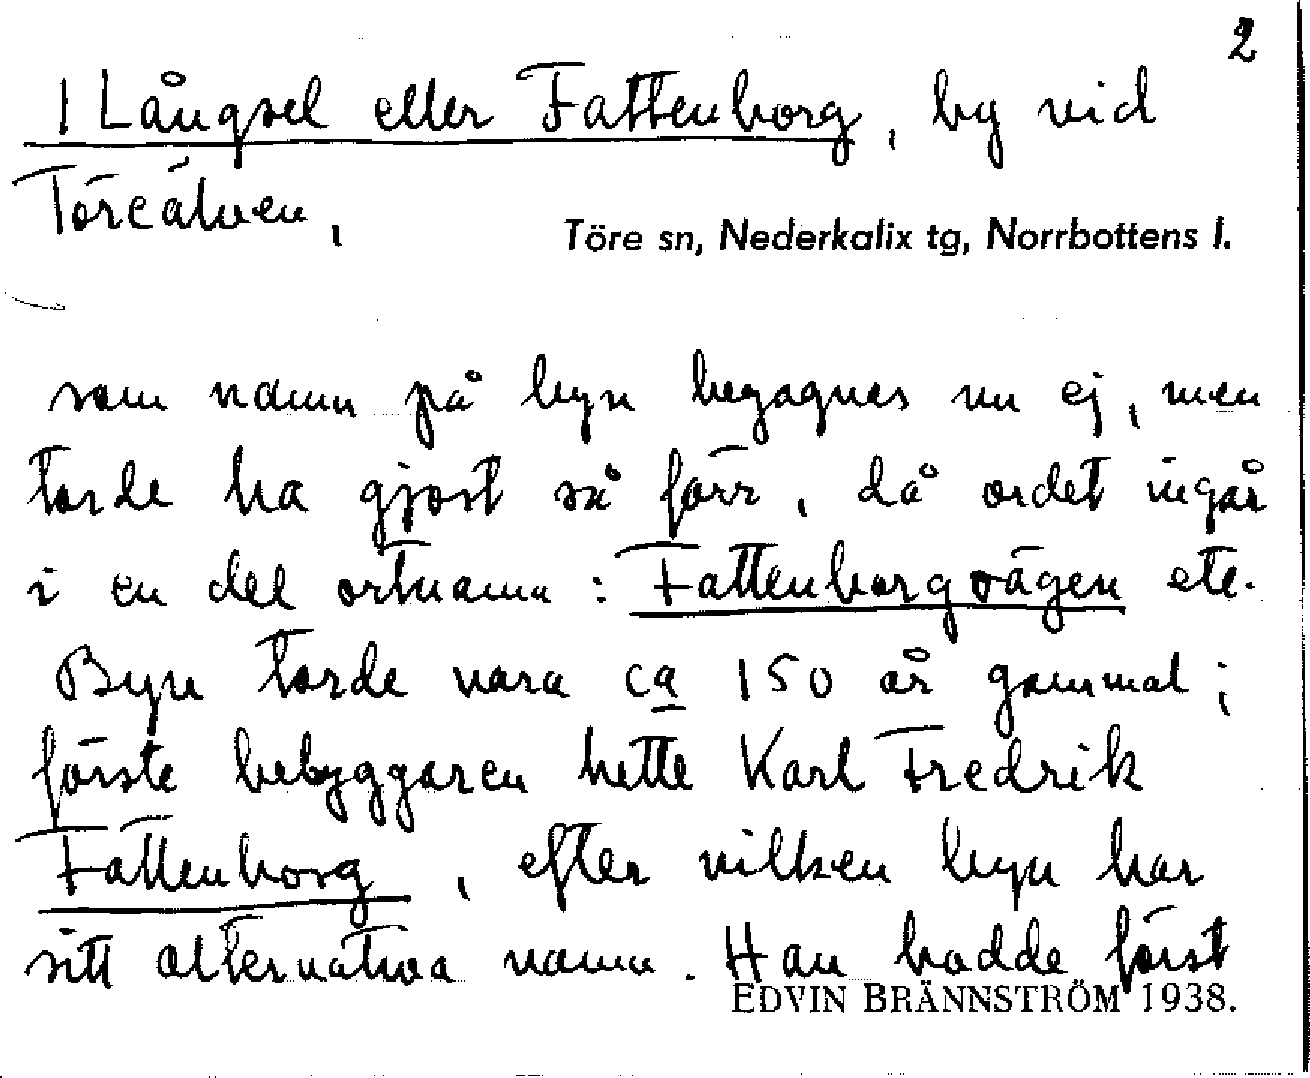 2
1 Långsel eller Fattenborg, by vid
Töreälven,
Töre sn, Nederkalix tg, Norrbottens l.
som namn på byn begagnas nu ej, men
torde ha gjort så förr, då ordet ingår
i en del ortnamn: Fattenborgvägen etc.
Byn torde vara ca 150 år gammal;
förste bebyggaren hette Karl Fredrik
Fattenborg, efter vilken byn har
sitt alternativa namn. Han hadde först
EDVIN BRÄNNSTRÖM 1938.